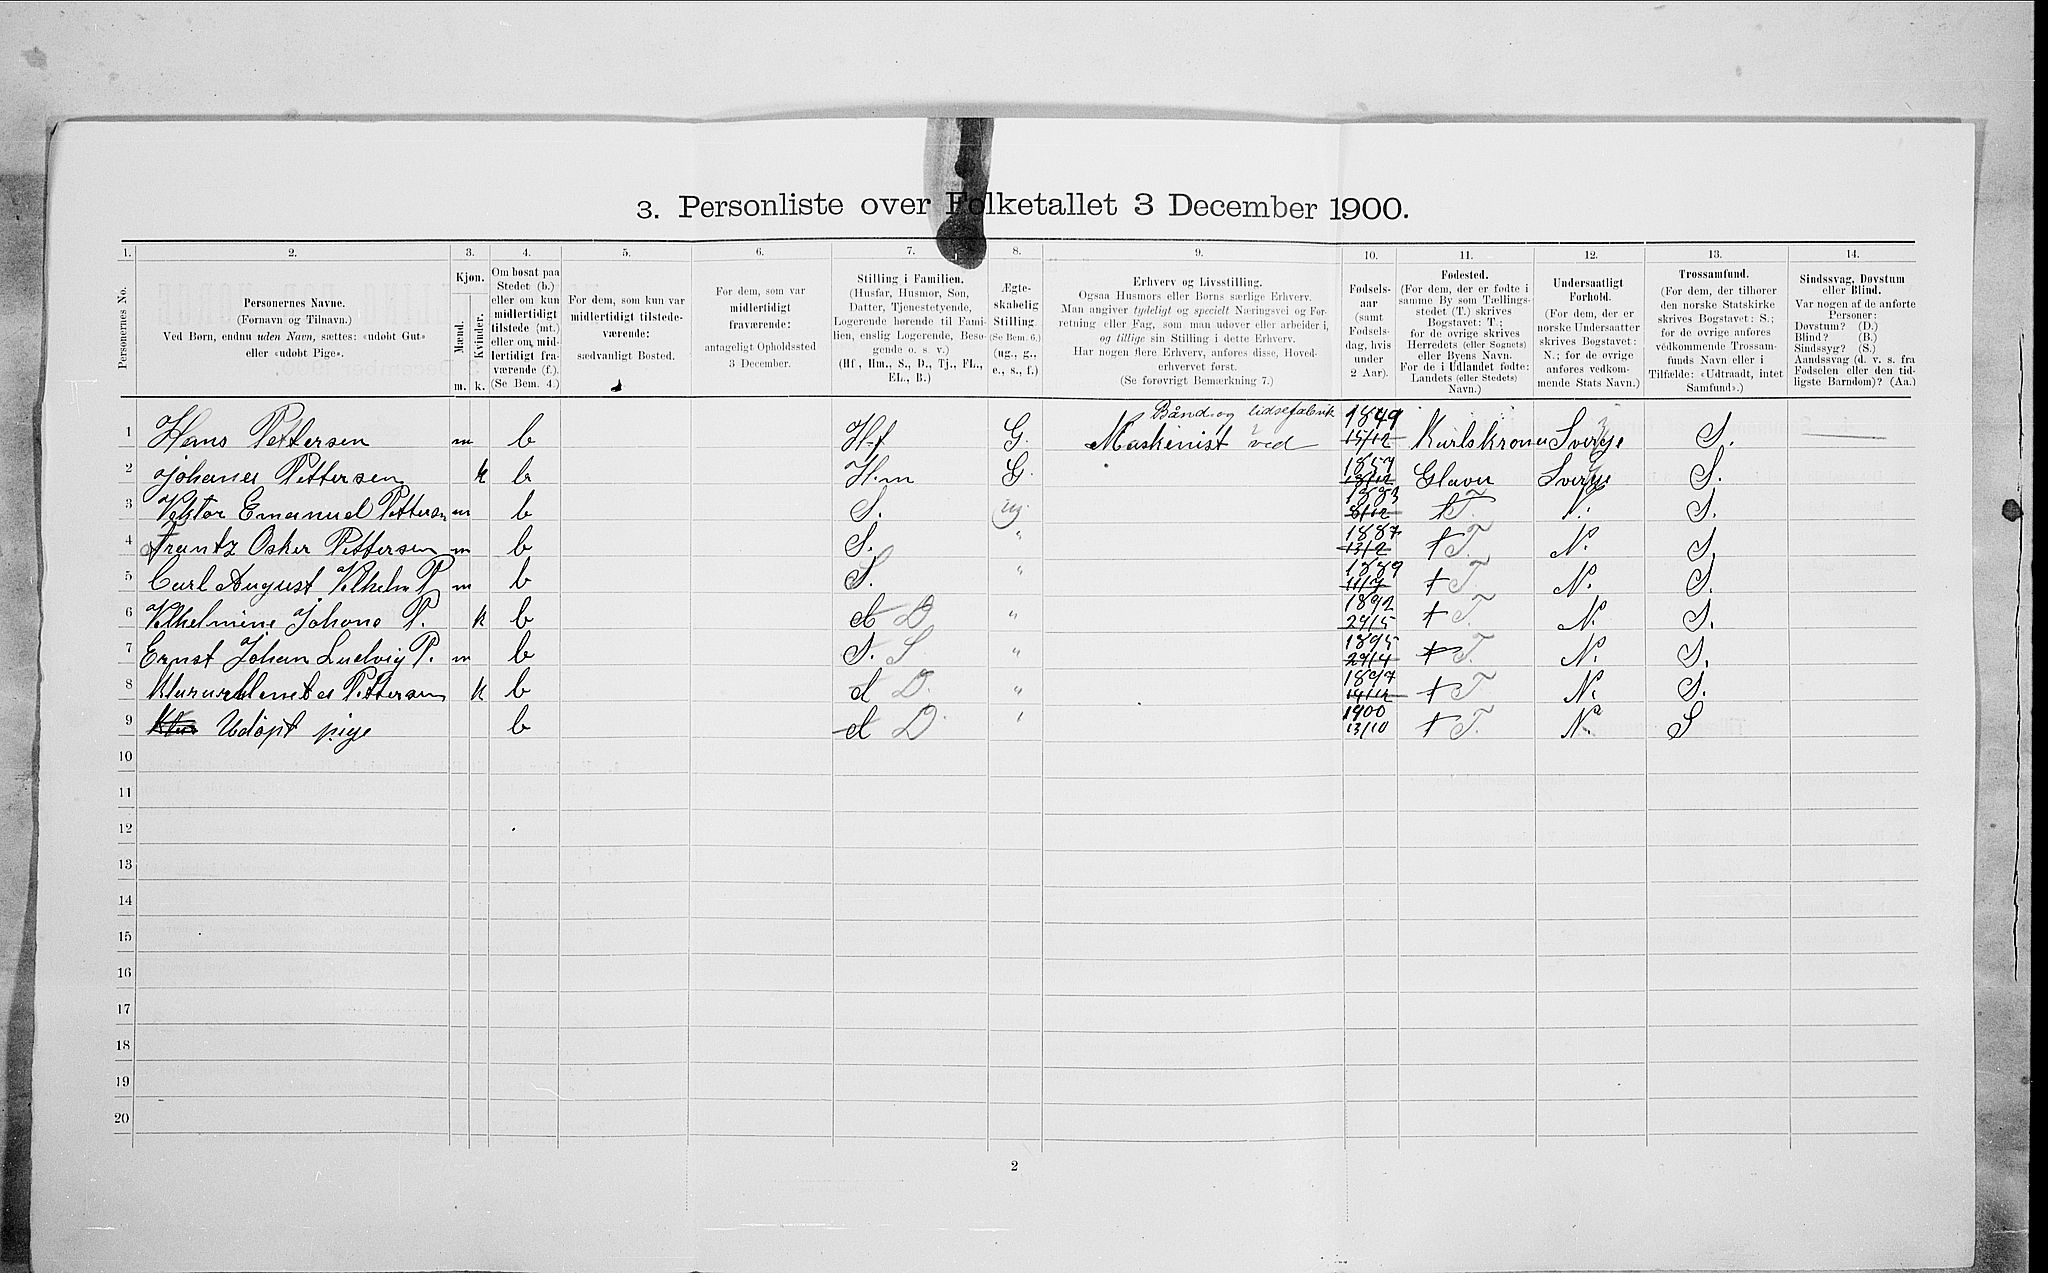 3. Personliste over Folketallet 3 December 1900.
1. 2. 3. 4. 5. 6. 7. 8. 9. 10. 11. 12. 13. 14.
Personernes No.
Personernes Navne.
(Fornavn og Tilnavn.)
Ved Børn, endnu uden Navn, sættes: «udøbt Gut»
eller «udøbt Pige».
Kjøn.
Mænd.
Kvinder.
m. k.
Om bosat paa
Stedet (b.)
eller om kun
midlertidigt
tilstede (mt.)
eller om, mid-
lertidigt fra-
værende (f.).
(Se Bem. 4.)
For dem, som kun var
midlertidigt tilstede-
værende:
sædvanligt Bosted.
For dem, som var
midlertidigt
fraværende:
antageligt Opholdssted
3 December.
Stilling i Familien.
(Husfar, Husmor, Søn,
Datter, Tjenestetyende,
Logerende hørende til Fami-
lien, enslig Logerende, Besø-
gende o. s. v.)
(Hf., Hm., S., D., Tj., FL.,
EL., B.)
Ægte-
skabelig
Stilling.
(Se Bem. 6.)
(ug., g.,
e., s., f.)
Erhverv og Livsstilling.
Ogsaa Husmors eller Børns særlige Erhverv.
Man angiver tydeligt og specielt Næringsvei og For-
retning eller Fag, som man udøver eller arbeider i,
og tillige sin Stilling i dette Erhverv.
Har nogen flere Erhverv, anføres disse, Hoved-
erhvervet først.
(Se forøvrigt Bemærkning 7.)
Fødsels-
aar
(samt
Fødsels-
dag, hvis
under
2 Aar).
Fødested.
(For dem, der er fødte i
samme By som Tællings-
stedet (T.) skrives
Bogstavet: T.;
for de øvrige skrives
Herredets (eller Sognets)
eller Byens Navn.
For de i Udlandet fødte:
Landets (eller Stedets)
Navn.)
Undersaatligt
Forhold.
(For dem, der er
norske Undersaatter
skrives Bogstavet:
N.; for de øvrige
anføres vedkom-
mende Stats Navn.)
Trossamfund.
(For dem, der tilhører
den norske Statskirke
skrives Bogstavet: S.;
for de øvrige anføres
vedkommende Trossam-
funds Navn eller i
Tilfælde: «Udtraadt, intet
Samfund».)
Sindssvag, Døvstum
eller Blind.
Var nogen af de anførte
Personer:
Døvstum? (D.)
Blind? (B.)
Sindssyg? (S.)
Aandssvag (d. v. s. fra
Fødselen eller den tid-
ligste Barndom)? (Aa.)
Bånd og lidsefabrik
1 Hans Pettersen m b H.f G. Maskinist ved 1849 15/12 Karlskrona Sverje S.
2 Johana Pettersen k b H.m G. 1857 Glava Sverje S.
3 Viktor Emanuel Pettersen m b S. ug. 1883 8/12 T. N. S.
4 Frantz Oskar Pettersen m b S. " 1887 13/2 T. N. S.
5 Carl August Vilhelm P. m b S. " 1889 11/7 T. N. S.
6 Vilhelmine Johane P. k b d D. " 1892 24/5 T. N. S.
7 Ernst Johan Ludvig P. m b S. S. " 1895 29/4 T. N. S.
8 Klara Pettersen k b d D. " 1897 T. N. S.
9 Udöpt pige b d D. " 1900 13/10 T. N. S
10
11
12
13
14
15
16
17
18
19
20
2